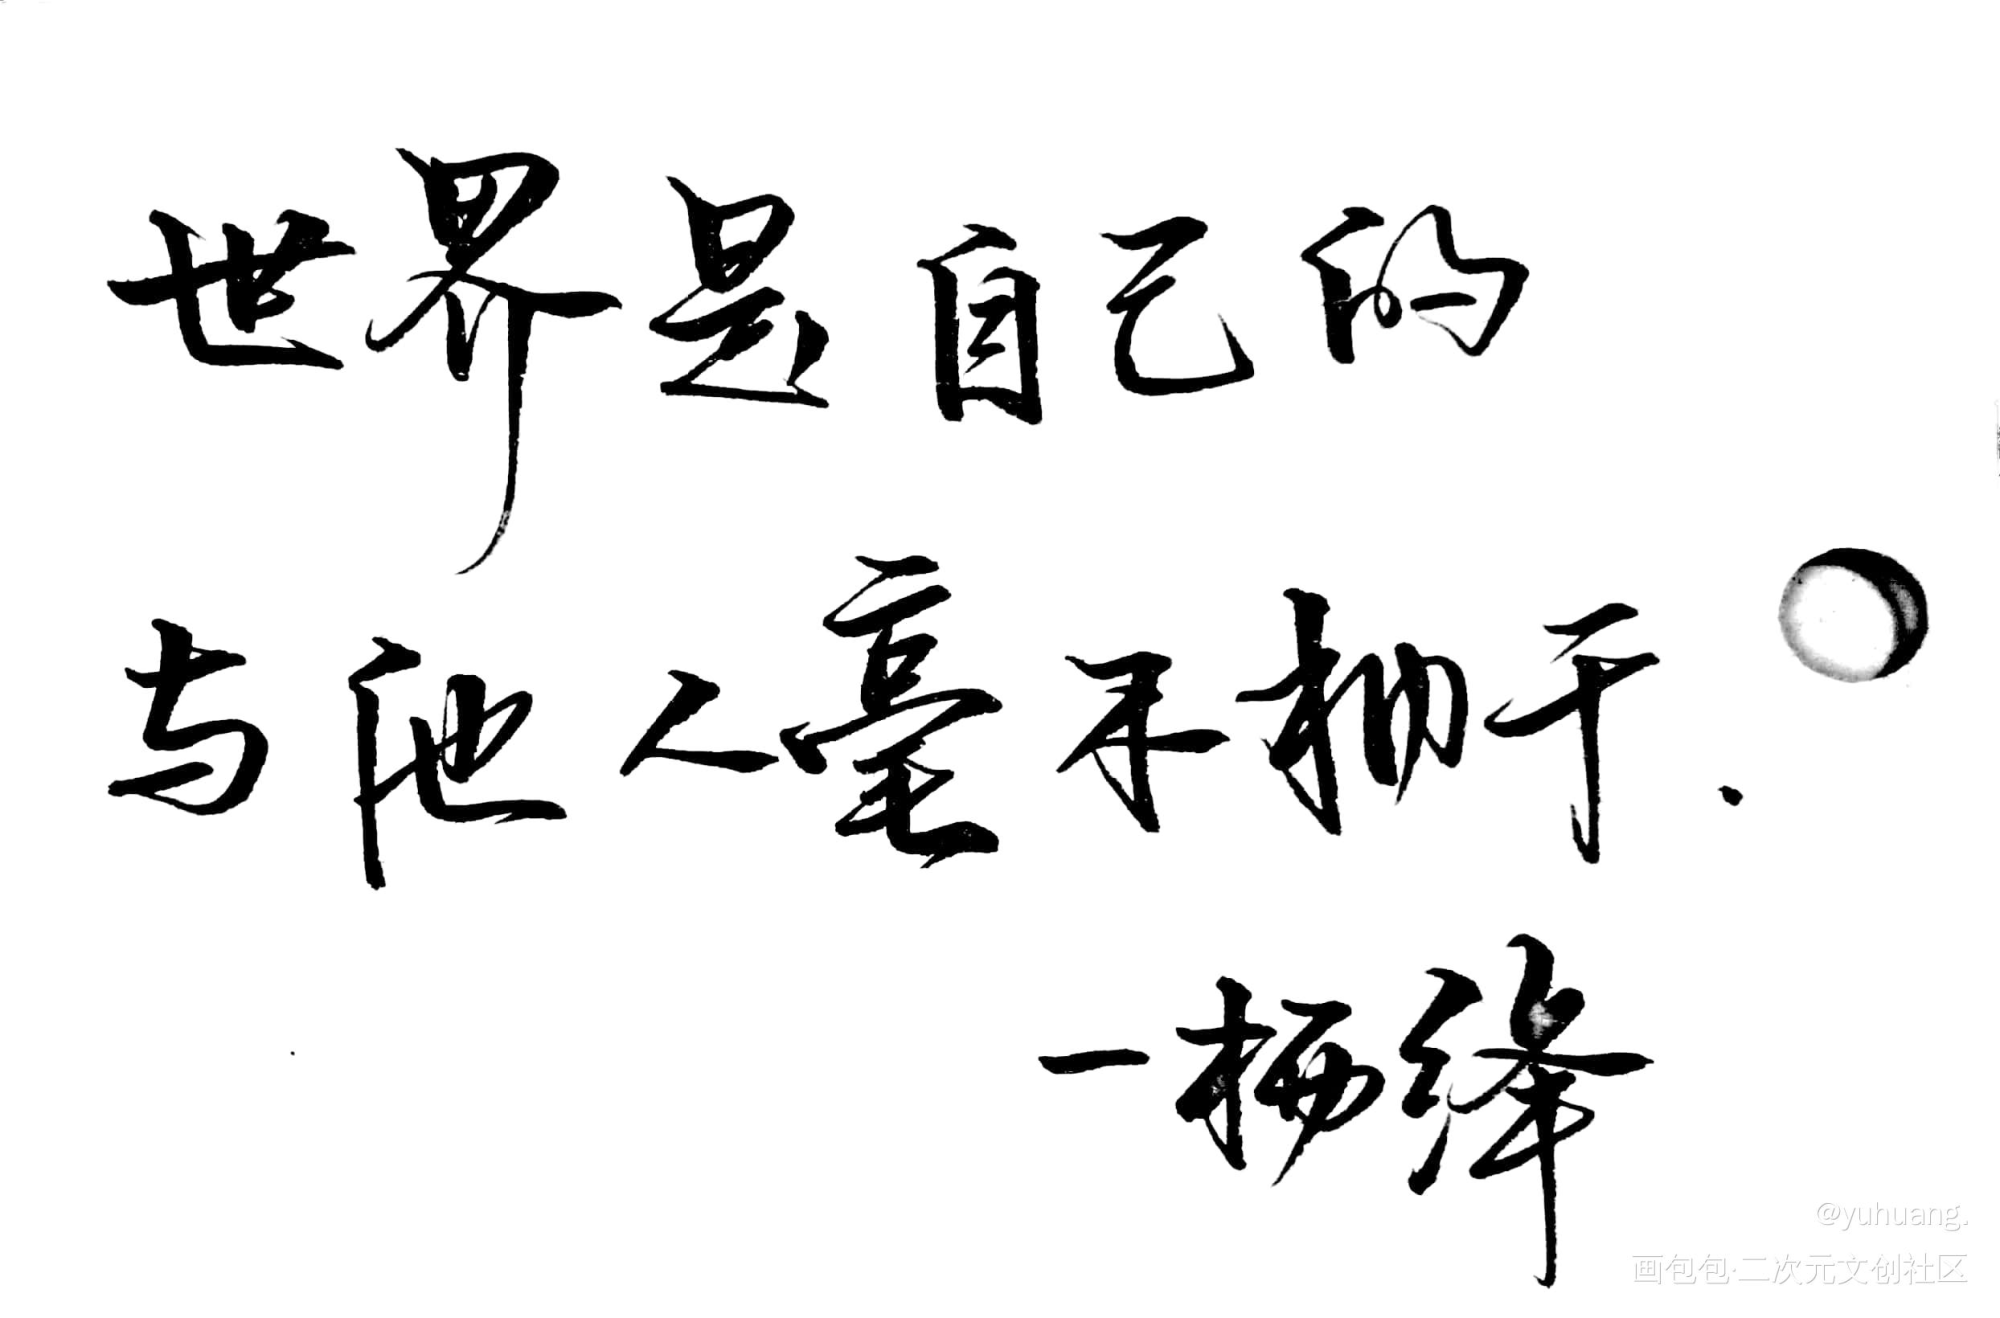 世界是自己的
与他人毫不相干.
—杨绛
@yuhuang.
画包包·二次元文创社区